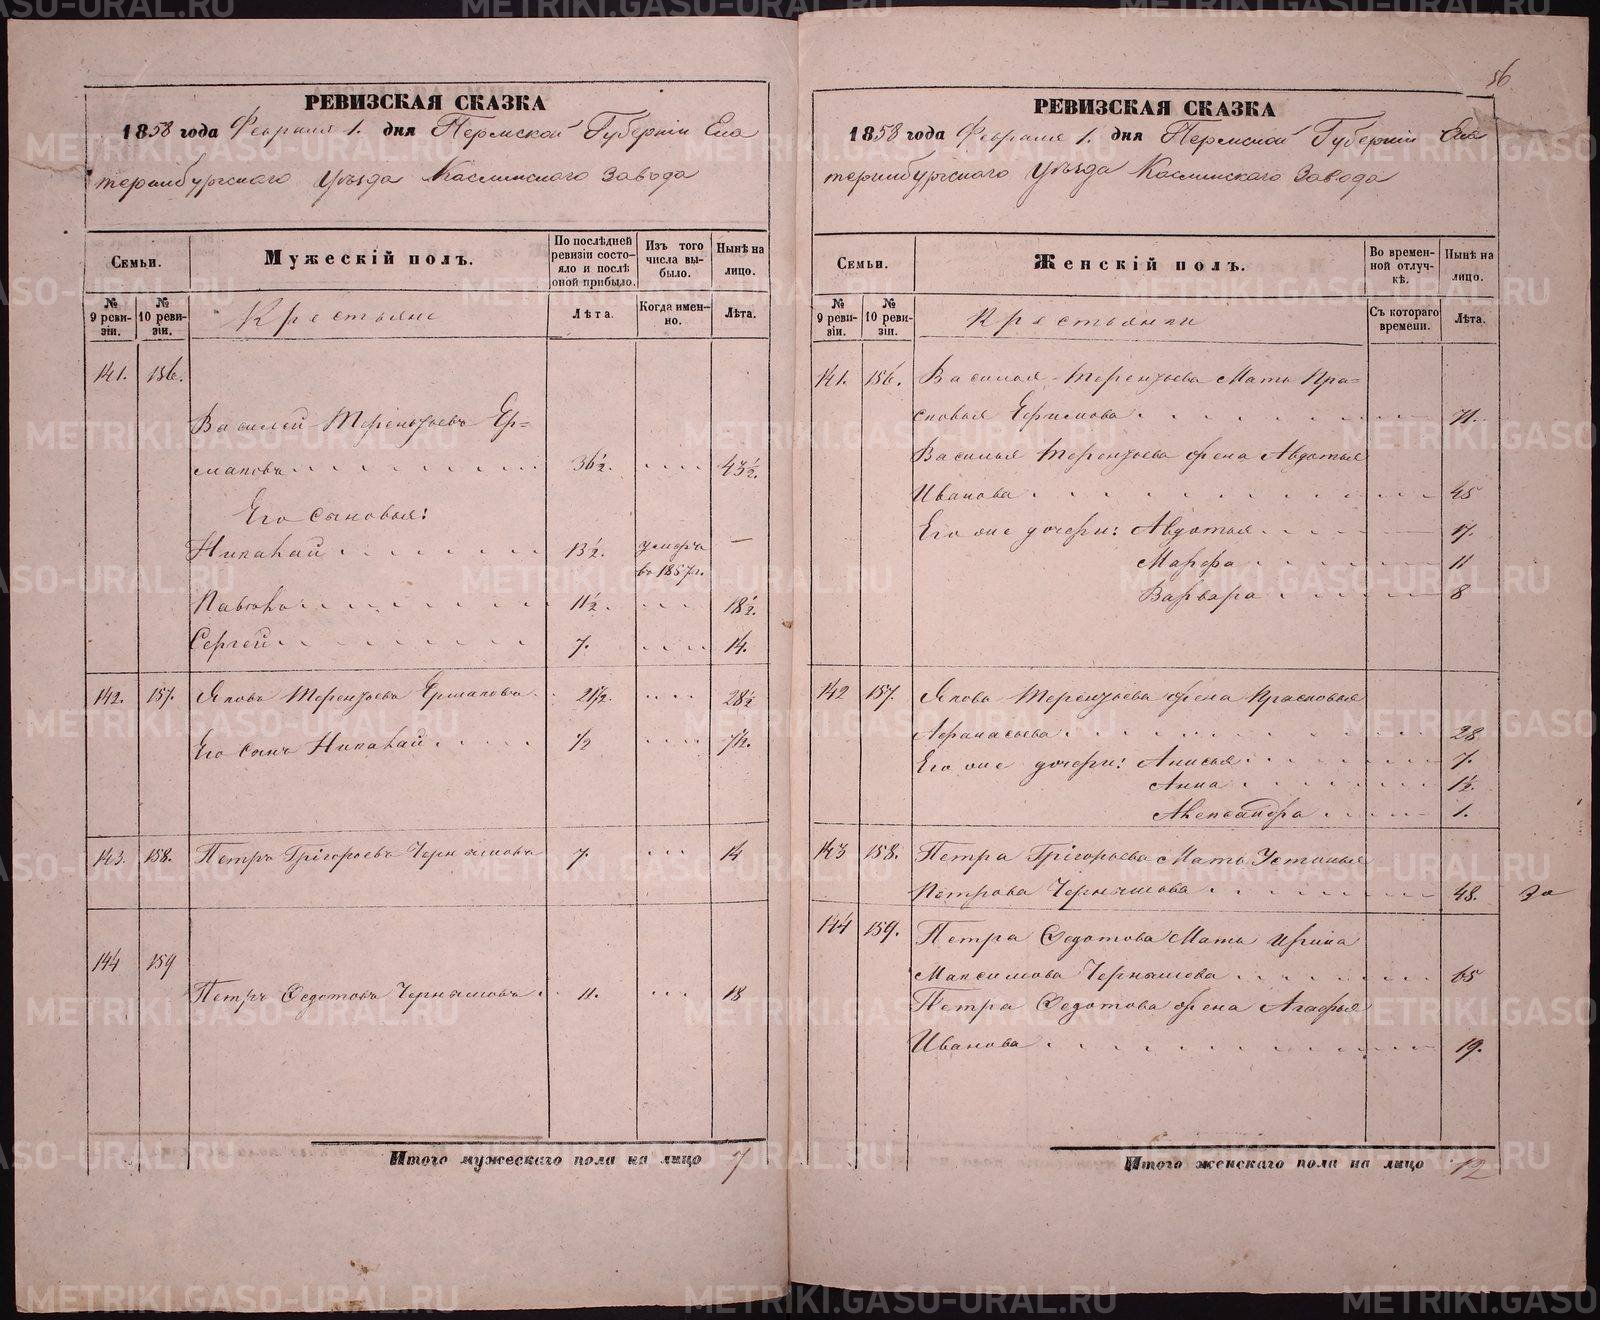 РЕВИЗСКАЯ СКАЗКА
1858 года Февраля 1. дня Пермской Губерніи Ека
теринбургскаго Уѣзда Каслинскаго Завода
Семьи.
Мужескій полъ.
По послѣдней ревизіи состояло и послѣ оной прибыло.
Изъ того числа выбыло.
Нынѣ на лицо.
№ 9 ревизіи.
№ 10 ревизіи.
Крестьяне
Лѣта.
Когда именно.
Лѣта.
141. 156.
Василей Терентьевъ Ер=
маковъ 36½. 43½.
Его сыновья:
Николай 13½. умеръ —
въ 1857 г.
Павелъ 11½. 18½
Сергей 7. 14.
142. 157. Яковъ Терентьевъ Ермаковъ 21½. 28½
Его сынъ Николай ½ 7½.
143. 158. Петръ Григорьевъ Чернышовъ 7. 14
144 159
Петръ Федотовъ Чернышовъ 11. 18
Итого мужескаго пола на лицо 7
56
РЕВИЗСКАЯ СКАЗКА
1858 года Февраля 1. дня Пермской Губерніи Ека
теринбургскаго Уѣзда Каслинскаго Завода
Семьи.
Женскій полъ.
Во временной отлучкѣ.
Нынѣ на лицо.
№ 9 ревизіи.
№ 10 ревизіи.
Крестьянки
Съ котораго времени.
Лѣта.
141. 156. Василья Терентьева Мать Пра=
сковья Ефимова 71.
Василья Терентьева жена Авдотья
Иванова 45
Его же дочери: Авдотья 17.
Марфа 11
Варвара 8
142 157. Якова Терентьева жена Прасковья
Афанасьева 28
Его же дочери: Анисья 7.
Анна 1½.
Александра 1.
143 158. Петра Григорьева Мать Устинья
Петрова Чернышова 48.
144 159. Петра Федотова Мать Ирина
Максимова Чернышева 65
Петра Федотова жена Агафья
Иванова 19.
Итого женскаго пола на лицо 12
METRIKI.GASO-URAL.RU